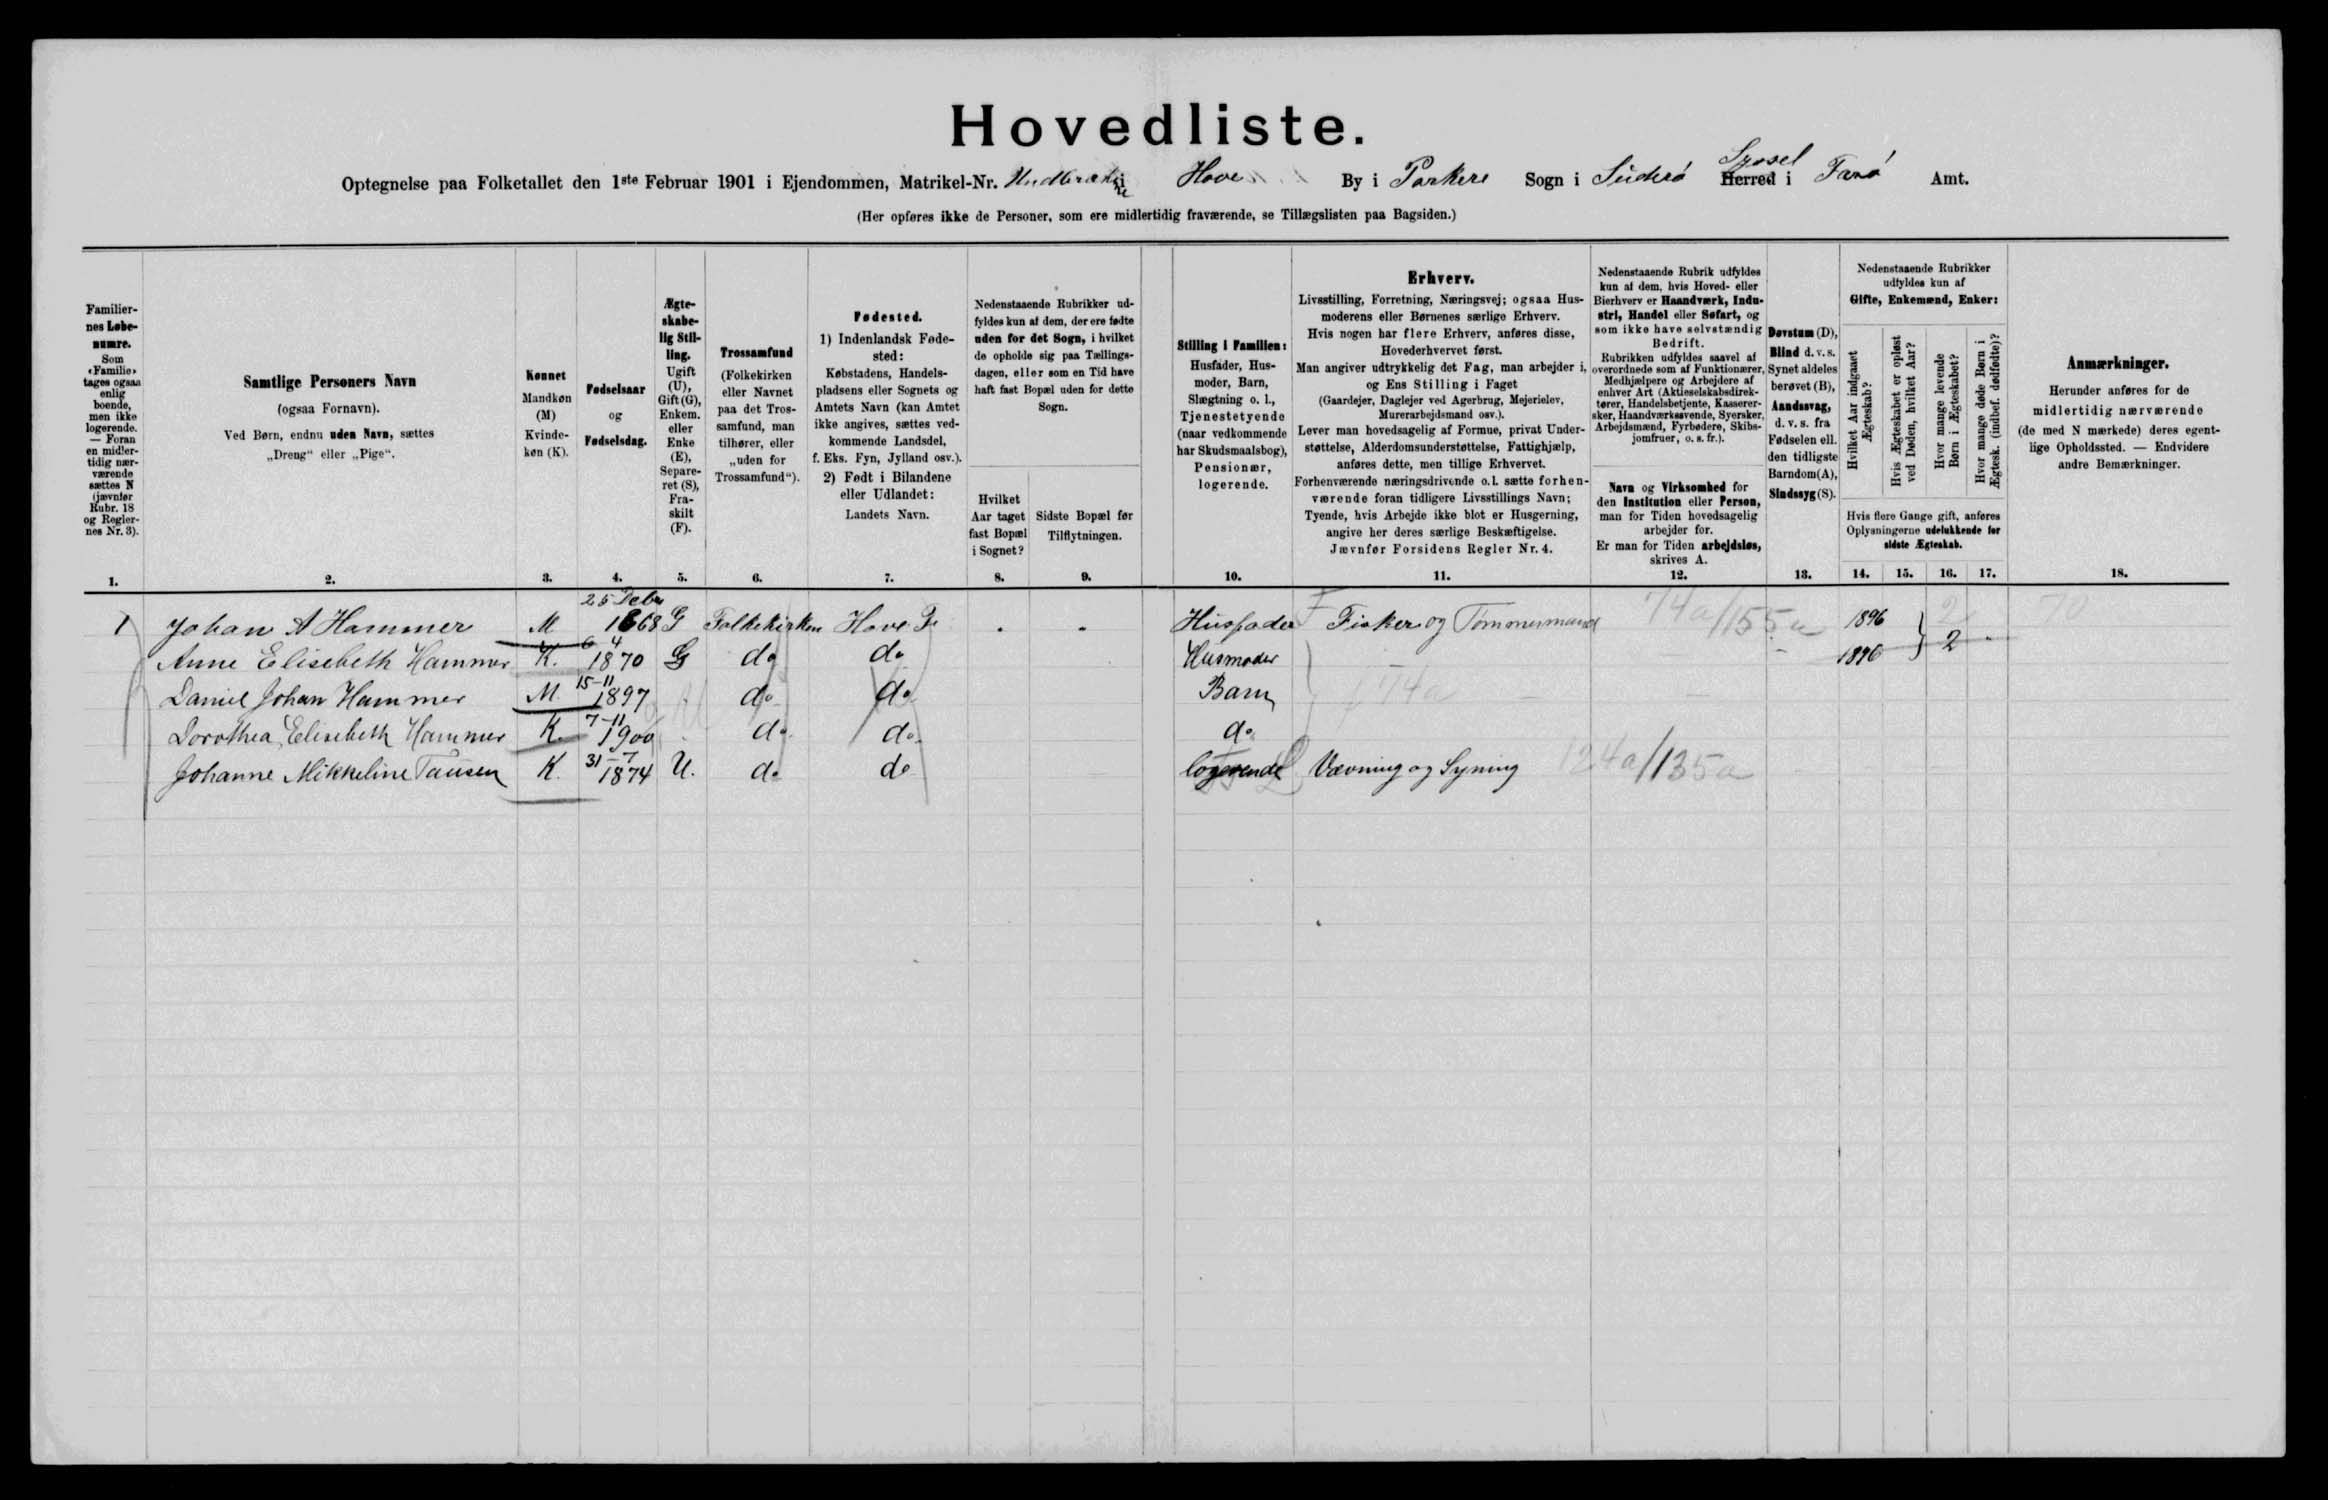 Hovedliste.
Optegnelse paa Folketallet den 1ste Februar 1901 i Ejendommen, Matrikel-Nr. i Hove By i Porkere Sogn i Süderö Herred Syssel i Færø Amt.
(Her opføres ikke de Personer, som ere midlertidig fraværende, se Tillægslisten paa Bagsiden.)
Familier-
nes Løbe-
numre.
Som
«Familie»
tages ogsaa
enlig
boende,
men ikke
logerende.
— Foran
en midler-
tidig nær-
værende
sættes N
(jævnfør
Rubr. 18
og Regler-
nes Nr. 3).
1.
Samtlige Personers Navn
(ogsaa Fornavn).
Ved Børn, endnu uden Navn, sættes
„Dreng“ eller „Pige“.
2.
Kønnet
Mandkøn
(M)
Kvinde-
køn (K).
3.
Fødselsaar
og
Fødselsdag.
4.
Ægte-
skabe-
lig Stil-
ling.
Ugift
(U),
Gift (G),
Enkem.
eller
Enke
(E),
Separe-
ret (S),
Fra-
skilt
(F).
5.
Trossamfund
(Folkekirken
eller Navnet
paa det Tros-
samfund, man
tilhører, eller
„uden for
Trossamfund“).
6.
Fødested.
1) Indenlandsk Føde-
sted:
Købstadens, Handels-
pladsens eller Sognets og
Amtets Navn (kan Amtet
ikke angives, sættes ved-
kommende Landsdel,
f. Eks. Fyn, Jylland osv.).
2) Født i Bilandene
eller Udlandet:
Landets Navn.
7.
Nedenstaaende Rubrikker ud-
fyldes kun af dem, der ere fødte
uden for det Sogn, i hvilket
de opholde sig paa Tællings-
dagen, eller som en Tid have
haft fast Bopæl uden for dette
Sogn.
Hvilket
Aar taget
fast Bopæl
i Sognet?
8.
Sidste Bopæl før
Tilflytningen.
9.
Stilling i Familien:
Husfader, Hus-
moder, Barn,
Slægtning o. l.,
Tjenestetyende
(naar vedkommende
har Skudsmaalsbog),
Pensionær,
logerende.
10.
Erhverv.
Livsstilling, Forretning, Næringsvej; ogsaa Hus-
moderens eller Børnenes særlige Erhverv.
Hvis nogen har flere Erhverv, anføres disse,
Hovederhvervet først.
Man angiver udtrykkelig det Fag, man arbejder i,
og Ens Stilling i Faget
(Gaardejer, Daglejer ved Agerbrug, Mejerielev,
Murerarbejdsmand osv.).
Lever man hovedsagelig af Formue, privat Under-
støttelse, Alderdomsunderstøttelse, Fattighjælp,
anføres dette, men tillige Erhvervet.
Forhenværende næringsdrivende o. l. sætte forhen-
værende foran tidligere Livsstillings Navn;
Tyende, hvis Arbejde ikke blot er Husgerning,
angive her deres særlige Beskæftigelse.
Jævnfør Forsidens Regler Nr. 4.
11.
Nedenstaaende Rubrik udfyldes
kun af dem, hvis Hoved- eller
Bierhverv er Haandværk, Indu-
stri, Handel eller Søfart, og
som ikke have selvstændig
Bedrift.
Rubrikken udfyldes saavel af
overordnede som af Funktionærer,
Medhjælpere og Arbejdere af
enhver Art (Aktieselskabsdirek-
tører, Handelsbetjente, Kasserer-
sker, Haandværkssvende, Syersker,
Arbejdsmænd, Fyrbødere, Skibs-
jomfruer, o. s. fr.).
Navn og Virksomhed for
den Institution eller Person,
man for Tiden hovedsagelig
arbejder for.
Er man for Tiden arbejdsløs,
skrives A.
12.
Døvstum (D),
Blind d. v. s.
Synet aldeles
berøvet (B),
Aandssvag,
d. v. s. fra
Fødselen ell.
den tidligste
Barndom (A),
Sindssyg (S).
13.
Nedenstaaende Rubrikker
udfyldes kun af
Gifte, Enkemænd, Enker:
Hvilket Aar indgaaet
Ægteskab?
Hvis Ægteskabet er opløst
ved Døden, hvilket Aar?
Hvor mange levende
Børn i Ægteskabet?
Hvor mange døde Børn i
Ægtesk. (indbef. dødfødte)?
Hvis flere Gange gift, anføres
Oplysningerne udelukkende for
sidste Ægteskab.
14. 15. 16. 17.
Anmærkninger.
Herunder anføres for de
midlertidig nærværende
(de med N mærkede) deres egent-
lige Opholdssted. — Endvidere
andre Bemærkninger.
18.
1 Johan A Hammer M 25 Debr 1868 G Folkekirken Hove Husfader Fisker og Tømmermand 74a/155a 1896 2 70
Anne Elisebeth Hammer K. 6 4 1870 G do do Husmoder 1896 2
Daniel Johan Hammer M. 15-11 1897 do do Barn 74a
Dorothea Elisebeth Hammer K. 7-11 1900 do do do
Johanne Mikkeline Tausen K. 31-7 1874 U. do do logerende Vævning og Syning 124a/135a